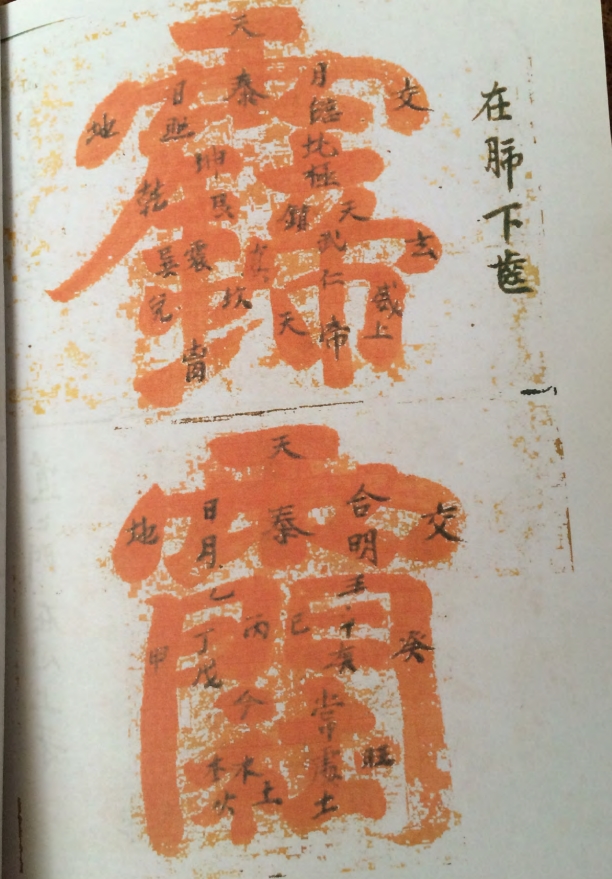 在肺下齒
天
泰
交
地
日照
月臨北極
坤艮
乾
鎮
天武仁
玄
巽
震
兌
坎
天
帝
上
天
泰
交
地
日月
合明
乙
丁戊
丙
己
甲
壬
癸
今
木火
水土
土
旺